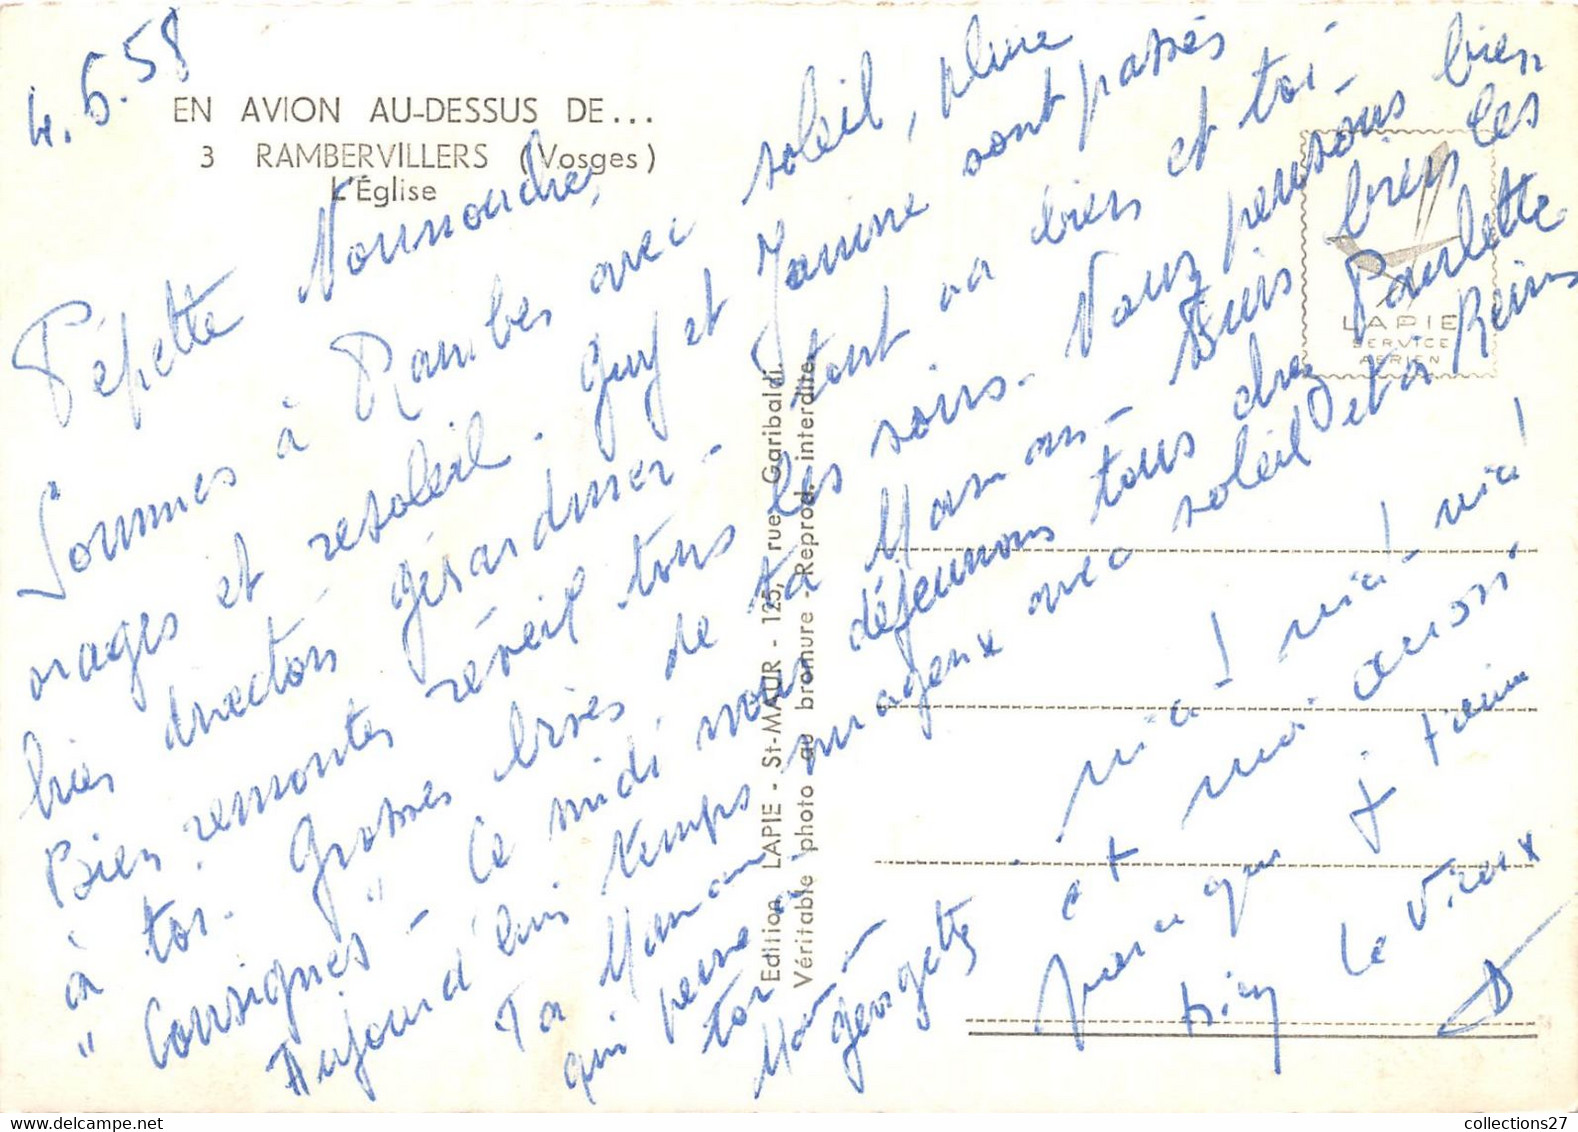 4.6.58
EN AVION AU-DESSUS DE...
3 RAMBERVILLERS (Vosges)
L'Église
Pépette
Sommes à Rambes avec soleil, pluie
orages et resoleil. Guy et Janine sont passés
hier direction gérardmer - tout va bien et toi -
Bien remontés réveil tous les soirs. Vous pensons bien
à toi. Grosses bises de ta Maman -
"Consignes" - Ce midi nous déjeunons tous chez Paulette
Aujourd'hui temps nuageux avec soleil et à Reims
Ta Maman
qui pense à
toi
Maman
georgette
nia! nia! - nia!
et + moi aussi
parce que j t'aime
bien
Le Vieux
Edition LAPIE - St-MAUR - 125, rue Garibaldi.
Véritable photo au bromure - Reprod. interdite.
LAPIE
SERVICE
AERIEN
collections27